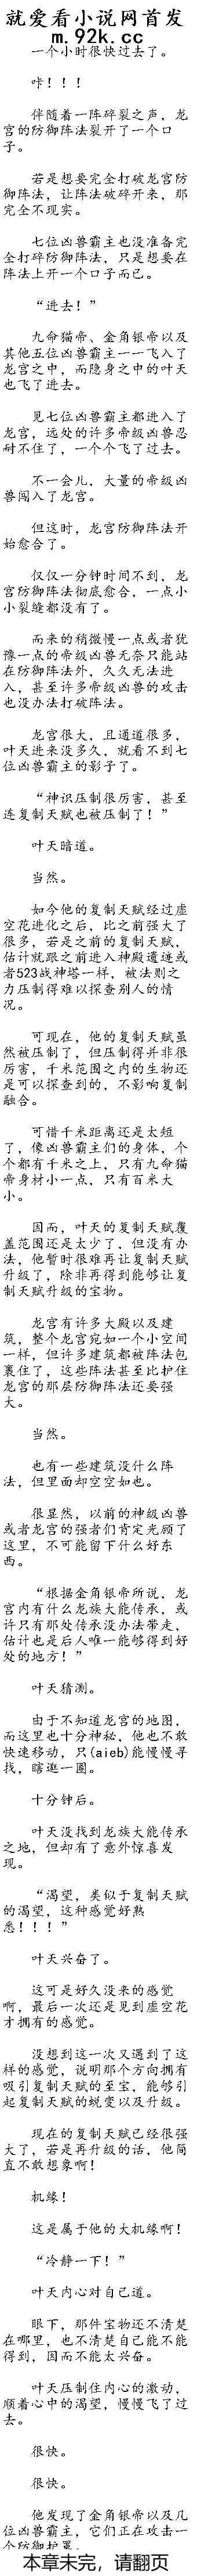 就爱看小说网首发
m.92k.cc
一个小时很快过去了。
咔！！！
伴随着一阵碎裂之声，龙
宫的防御阵法裂开了一个口
子。
若是想要完全打破龙宫防
御阵法，让阵法破碎开来，那
完全不现实。
七位凶兽霸主也没准备完
全打碎防御阵法，只是想要在
阵法上开一个口子而已。
“进去！”
九命猫帝、金角银帝以及
其他五位凶兽霸主一一飞入了
龙宫之中，而隐身之中的叶天
也飞了进去。
见七位凶兽霸主都进入了
龙宫，远处的许多帝级凶兽忍
耐不住了，一个个飞了过去。
不一会儿，大量的帝级凶
兽闯入了龙宫。
但这时，龙宫防御阵法开
始愈合了。
仅仅一分钟时间不到，龙
宫防御阵法彻底愈合，一点小
小裂缝都没有了。
而来的稍微慢一点或者犹
豫一点的帝级凶兽无奈只能站
在防御阵法外，久久无法进
入，甚至许多帝级凶兽的攻击
也没办法打破阵法。
龙宫很大，且通道很多，
叶天进来没多久，就看不到七
位凶兽霸主的影子了。
“神识压制很厉害，甚至
连复制天赋也被压制了！”
叶天暗道。
当然。
如今他的复制天赋经过虚
空花进化之后，比之前强大了
很多，若是之前的复制天赋，
估计就跟之前进入神殿遗迹或
者523战神塔一样，被法则之
力压制得难以探查别人的情
况。
可现在，他的复制天赋虽
然被压制了，但压制得并非很
厉害，千米范围之内的生物还
是可以探查到的，不影响复制
融合。
可惜千米距离还是太短
了，像凶兽霸主们的身体，个
个都有千米之上，只有九命猫
帝身材小一点，只有百米大
小。
因而，叶天的复制天赋覆
盖范围还是太少了，但没有办
法，他暂时很难再让复制天赋
升级了，除非再得到能够让复
制天赋升级的宝物。
龙宫有许多大殿以及建
筑，整个龙宫宛如一个小空间
一样，但许多建筑都被阵法包
裹住了，这些阵法甚至比护住
龙宫的那层防御阵法还要强
大。
当然。
也有一些建筑没什么阵
法，但里面却空空如也。
很显然，以前的神级凶兽
或者龙宫的强者们肯定光顾了
这里，不可能留下什么好东
西。
“根据金角银帝所说，龙
宫内有什么龙族大能传承，或
许只有那处传承没办法带走，
估计也是后人唯一能够得到好
处的地方！”
叶天猜测。
由于不知道龙宫的地图，
而这里也十分神秘，他也不敢
快速移动，只(aieb)能慢慢寻
找，瞎逛一圈。
十分钟后。
叶天没找到龙族大能传承
之地，但却有了意外惊喜发
现。
“渴望，类似于复制天赋
的渴望，这种感觉好熟
悉！！！”
叶天兴奋了。
这可是好久没来的感觉
啊，最后一次还是见到虚空花
才拥有的感觉。
没想到这一次又遇到了这
样的感觉，说明那个方向拥有
吸引复制天赋的至宝，能够引
起复制天赋的蜕变以及升级。
现在的复制天赋已经很强
大了，若是再升级的话，他简
直不敢想象啊！
机缘！
这是属于他的大机缘啊！
“冷静一下！”
叶天内心对自己道。
眼下，那件宝物还不清楚
在哪里，也不清楚自己能不能
得到，因而不能太兴奋。
叶天压制住内心的激动，
顺着心中的渴望，慢慢飞了过
去。
很快。
很快。
他发现了金角银帝以及几
位凶兽霸主，它们正在攻击一
个防御护罩。
本章未完，请翻页